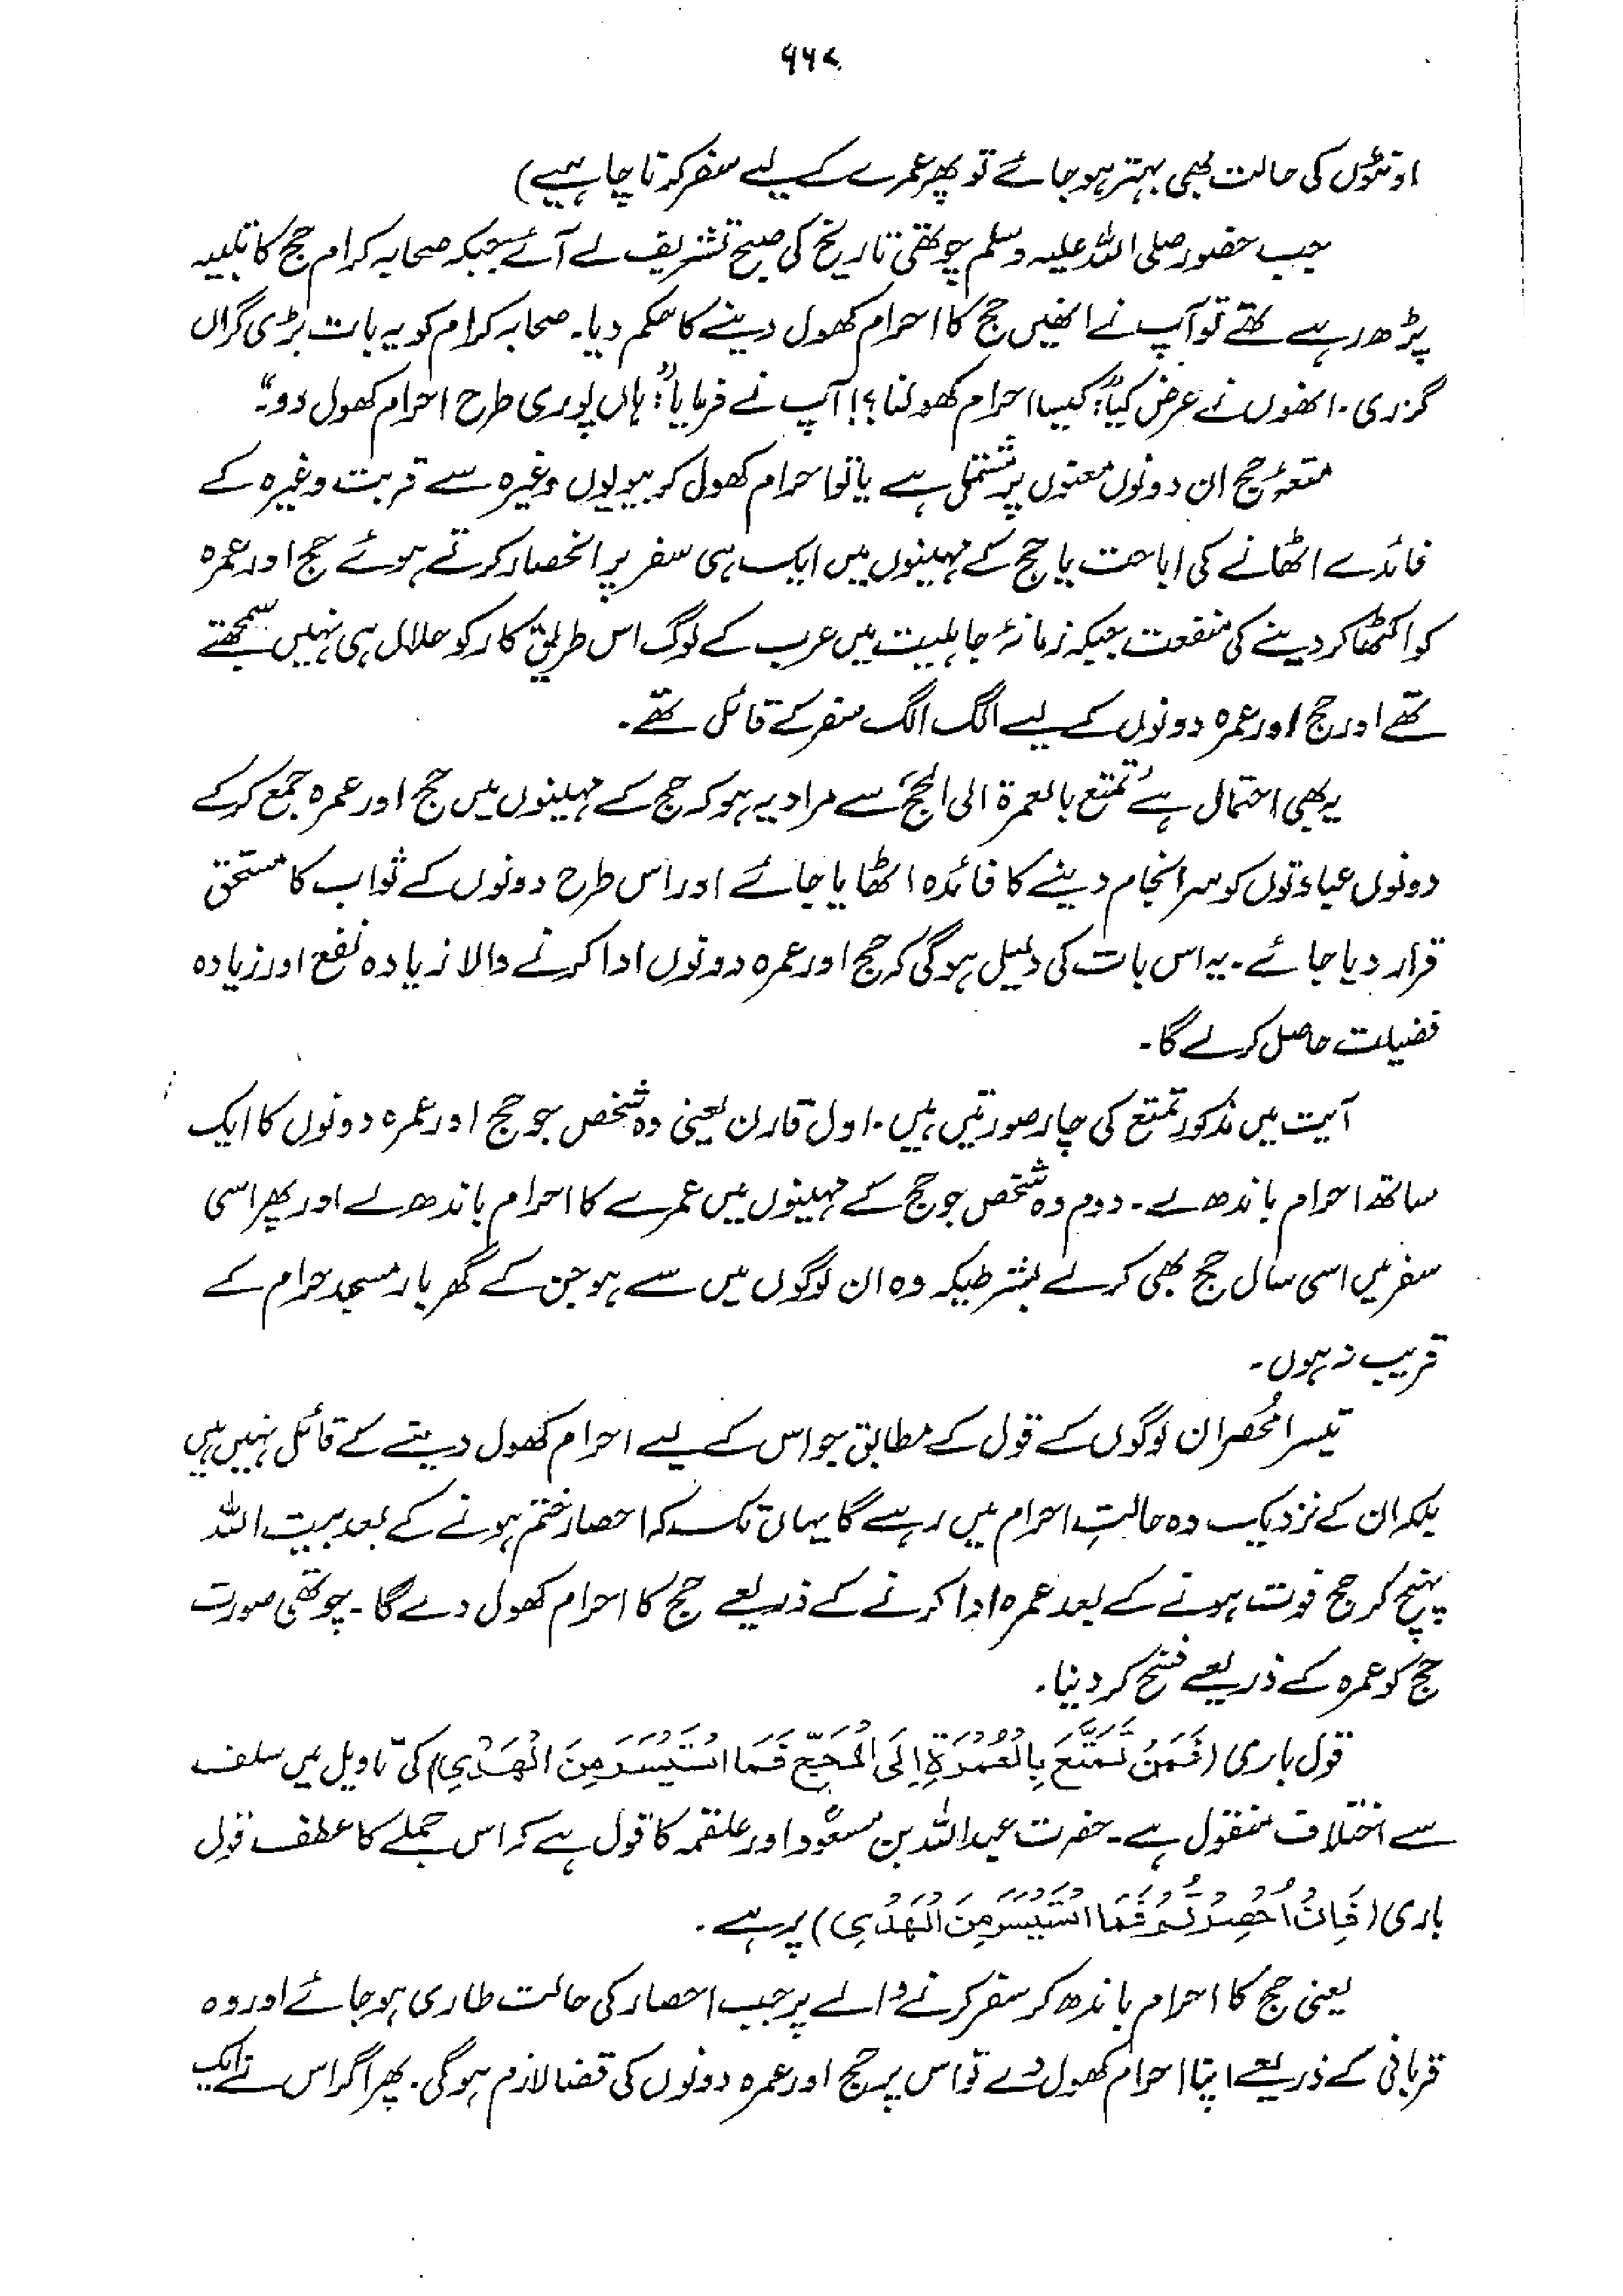 ۶۶۷
اونٹوں کی حالت بھی بہتر ہو جائے تو پھر عمرے کے لیے سفر کرنا چاہیے)
جب حضور صلی اللہ علیہ وسلم چوتھی تاریخ کی صبح تشریف لے آئے جبکہ صحابہ کرام حج کا تلبیہ
پڑھ رہے تھے تو آپ نے انھیں حج کا احرام کھول دینے کا حکم دیا۔ صحابہ کرام کو یہ بات بڑی گراں
گزری۔ انھوں نے عرض کیا: "کیسا احرام کھولنا؟! آپ نے فرمایا: "ہاں پوری طرح احرام کھول دو"۔
متعۂ حج ان دونوں معنوں پر مشتمل ہے یا تو احرام کھول کر بیویوں وغیرہ سے قربت وغیرہ کے
فائدے اٹھانے کی اباحت یا حج کے مہینوں میں ایک ہی سفر پر انحصار کرتے ہوئے حج اور عمرہ
کو اکٹھا کر دینے کی منفعت جبکہ زمانۂ جاہلیت میں عرب کے لوگ اس طریق کار کو حلال ہی نہیں سمجھتے
تھے اور حج اور عمرہ دونوں کے لیے الگ الگ سفر کے قائل تھے۔
یہ بھی احتمال ہے 'تمتع بالعمرۃ الی الحج' سے مراد یہ ہو کہ حج کے مہینوں میں حج اور عمرہ جمع کر کے
دونوں عبادتوں کو سرانجام دینے کا فائدہ اٹھایا جائے اور اس طرح دونوں کے ثواب کا مستحق
قرار دیا جائے۔ یہ اس بات کی دلیل ہو گی کہ حج اور عمرہ دونوں ادا کرنے والا زیادہ نفع اور زیادہ
فضیلت حاصل کرلے گا۔
آیت میں مذکور تمتع کی چار صورتیں ہیں۔ اول قارن یعنی وہ شخص جو حج اور عمرہ دونوں کا ایک
ساتھ احرام باندھ لے۔ دوم وہ شخص جو حج کے مہینوں میں عمرے کا احرام باندھ لے اور پھر اسی
سفر میں اسی سال حج بھی کرلے بشرطیکہ وہ ان لوگوں میں سے ہو جن کے گھر بار مسجد حرام کے
قریب نہ ہوں۔
تیسرا مُحصَر ان لوگوں کے قول کے مطابق جو اس کے لیے احرام کھول دینے کے قائل نہیں ہیں
بلکہ ان کے نزدیک وہ حالتِ احرام میں رہے گا یہاں تک کہ احصار ختم ہونے کے بعد بیت اللہ
پہنچ کر حج فوت ہونے کے بعد عمرہ ادا کرنے کے ذریعے حج کا احرام کھول دے گا۔ چوتھی صورت
حج کو عمرہ کے ذریعے فسخ کر دینا۔
قول باری (فَمَنْ تَمَتَّعَ بِالْعُمْرَةِ اِلَى الْحَجِّ فَمَا اسْتَيْسَرَ مِنَ الْهَدْيِ) کی تاویل میں سلف
سے اختلاف منقول ہے۔ حضرت عبداللہ بن مسعودؓ اور علقمہ کا قول ہے کہ اس جملے کا عطف قول
باری (فَاِنْ اُحْصِرْتُمْ فَمَا اسْتَيْسَرَ مِنَ الْهَدْيِ) پر ہے۔
یعنی حج کا احرام باندھ کر سفر کرنے والے پر جب احصار کی حالت طاری ہو جائے اور وہ
قربانی کے ذریعے اپنا احرام کھول دے تو اس پر حج اور عمرہ دونوں کی قضا لازم ہوگی۔ پھر اگر اس نے ایک